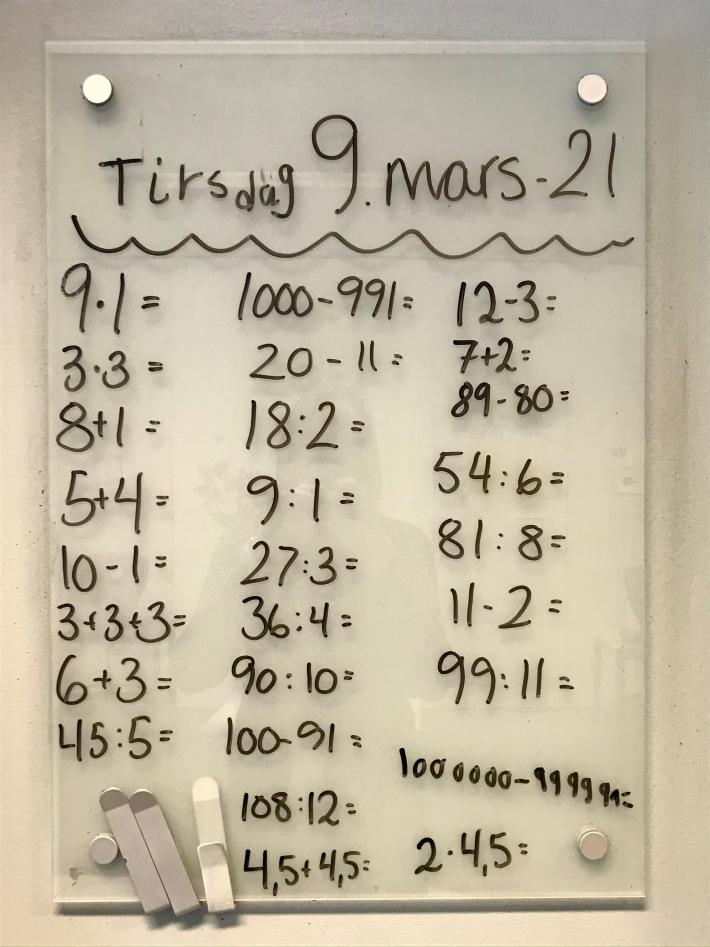 Tirsdag 9. mars-21
9·1=
3·3=
8+1=
5+4=
10-1=
3+3+3=
6+3=
45:5=
1000-991=
20-11=
18:2=
9:1=
27:3=
36:4=
90:10=
100-91=
108:12=
4,5+4,5=
12-3=
7+2=
89-80=
54:6=
81:8=
11-2=
99:11=
1000000-999991=
2·4,5=